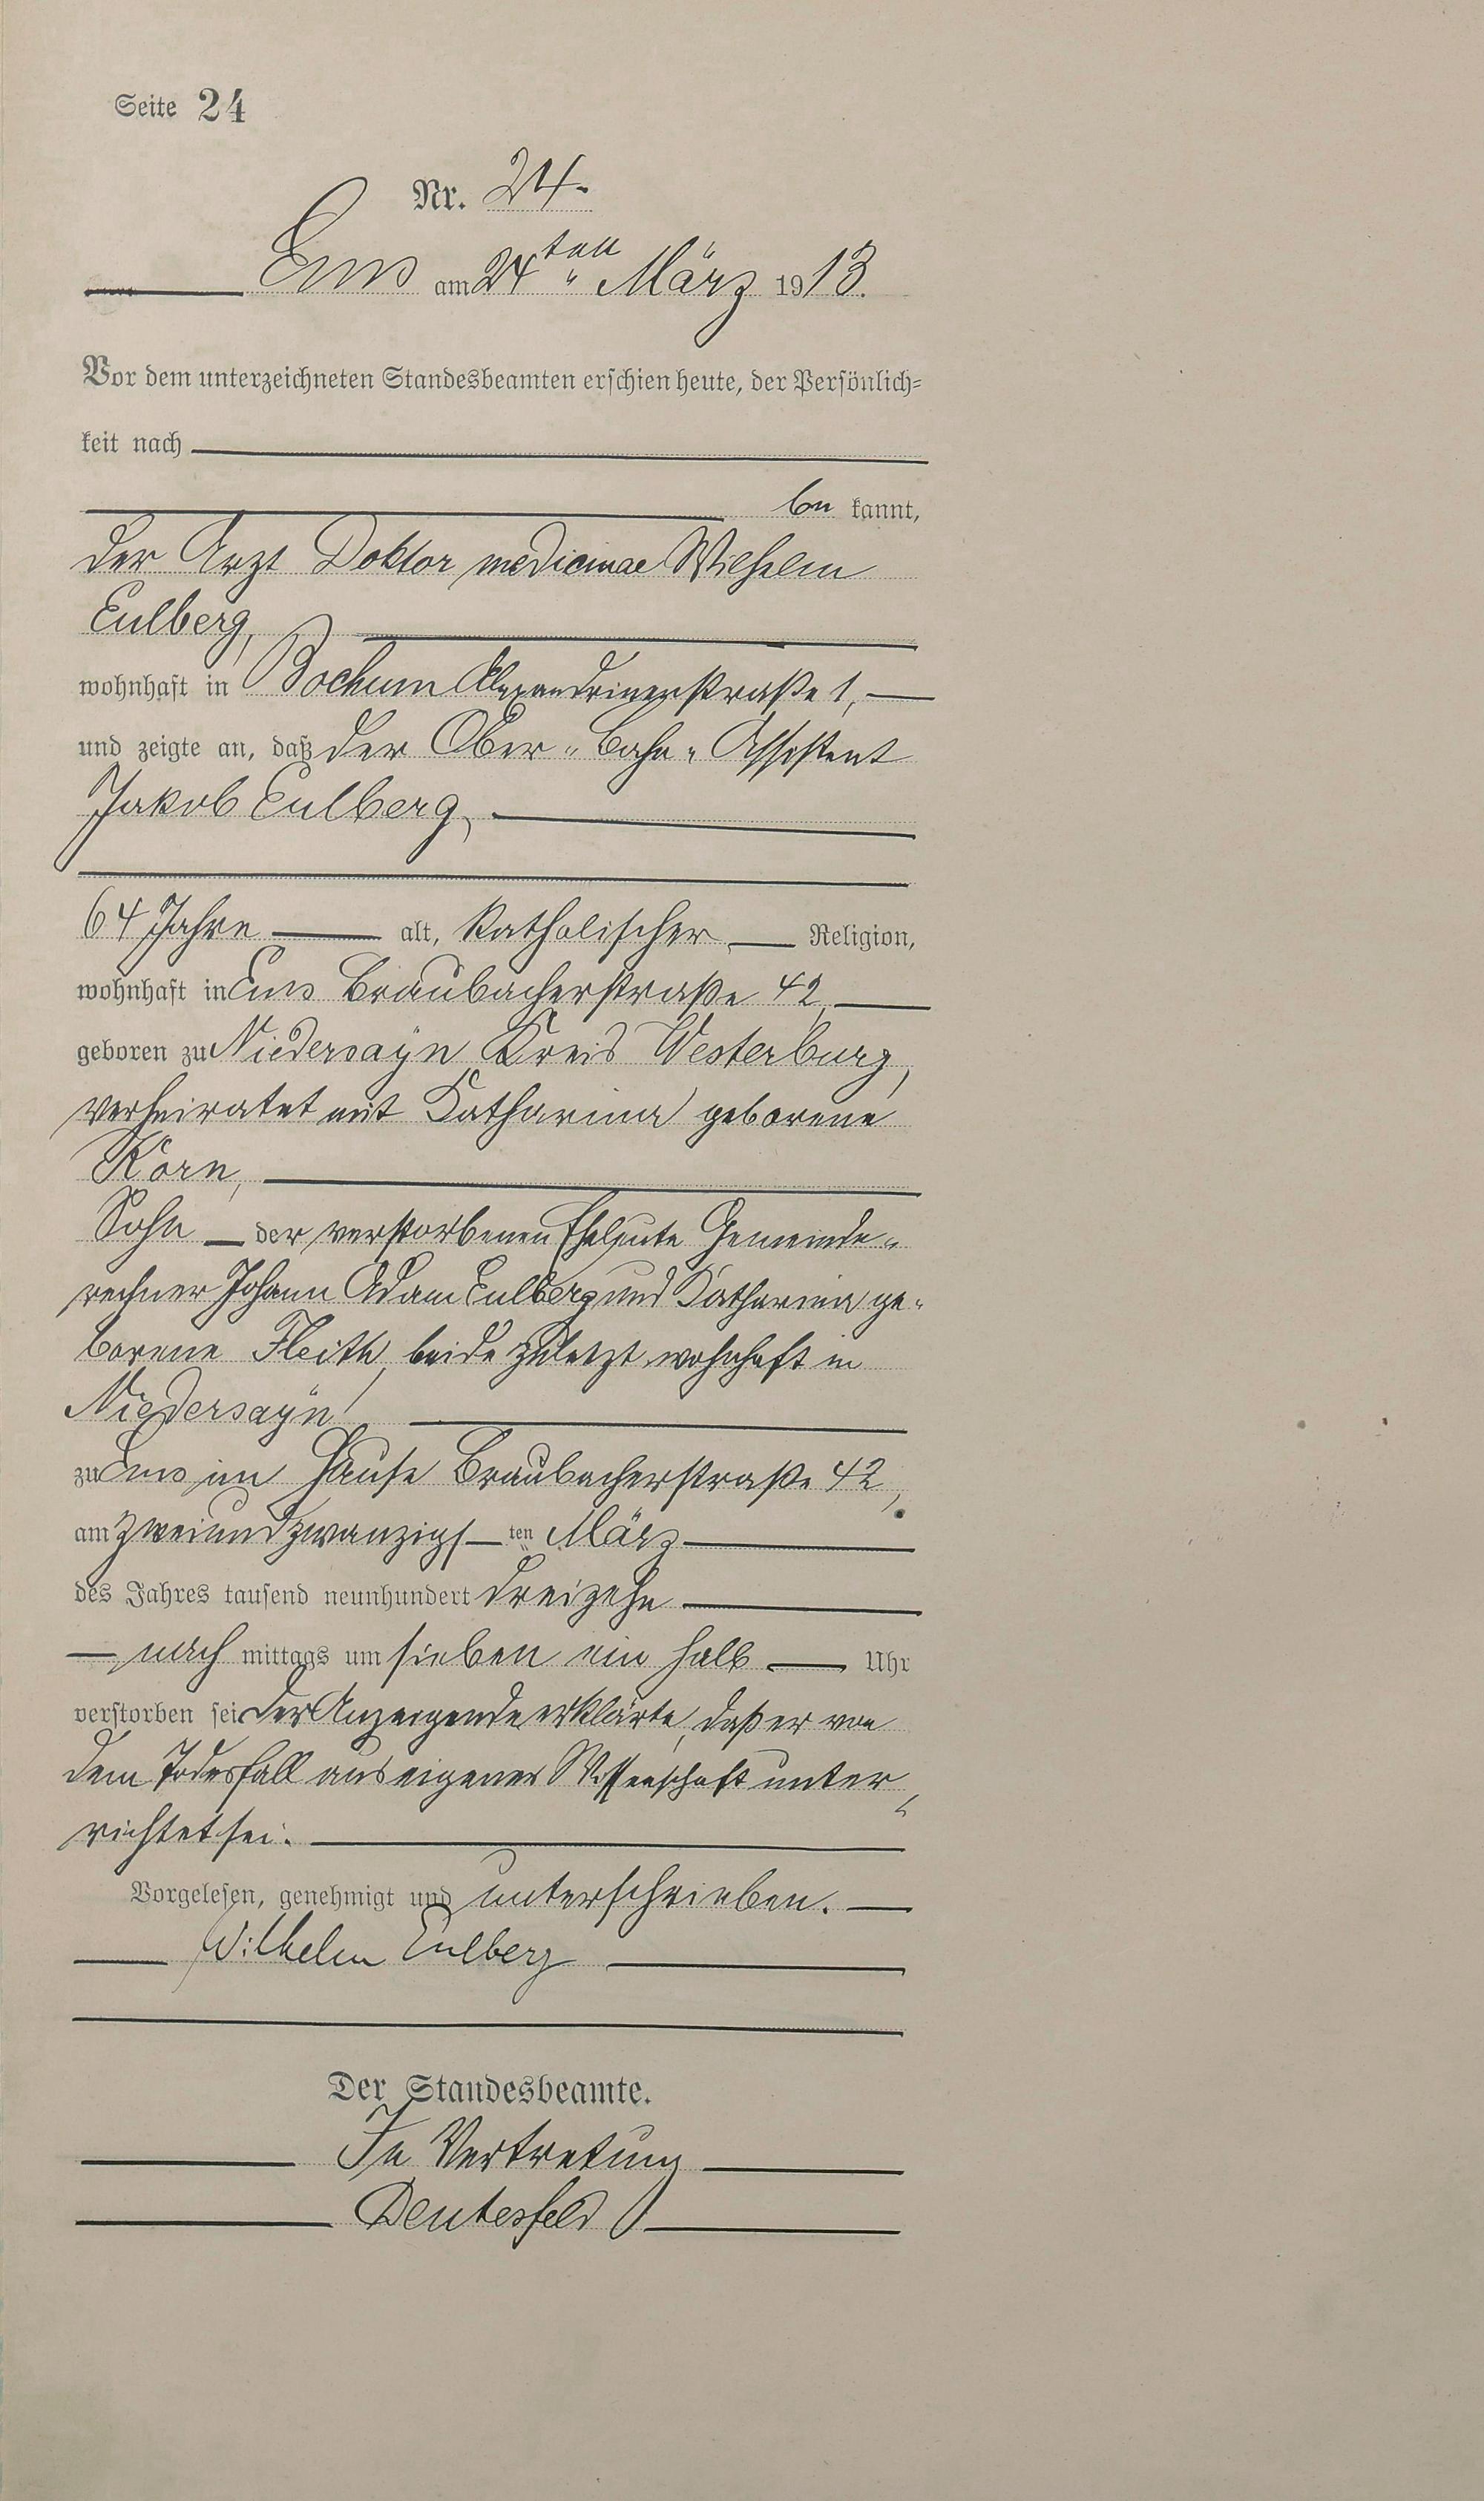 Seite 24
Nr. 24.
Ems am 24ten März 1913.
Vor dem unterzeichneten Standesbeamten erschien heute, der Persönlich=
keit nach
be kannt,
der Arzt Doktor medicinae Wilhelm
Eulberg,
wohnhaft in Bochum Alexandrinenstraße 1,
und zeigte an, daß der Ober-Bahn-Assistent
Jakob Eulberg,
64 Jahre alt, katholischer Religion,
wohnhaft in Ems Braubacherstraße 42,
geboren zu Niedersayn, Kreis Westerburg,
verheiratet mit Katharina geborene
Korn,
Sohn der verstorbenen Eheleute Gemeinde-
rechner Johann Adam Eulberg und Katharina ge-
borene Fleith, beide zuletzt wohnhaft in
Niedersayn
zu Ems im Hause Braubacherstraße 42,
am zweiundzwanzigsten März
des Jahres tausend neunhundert dreizehn
nach mittags um sieben ein halb Uhr
verstorben sei der Anzeigende erklärte, daß er von
dem Todesfall aus eigener Wissenschaft unter-
richtet sei.
Vorgelesen, genehmigt und unterschrieben.
Wilhelm Eulberg
Der Standesbeamte.
In Vertretung